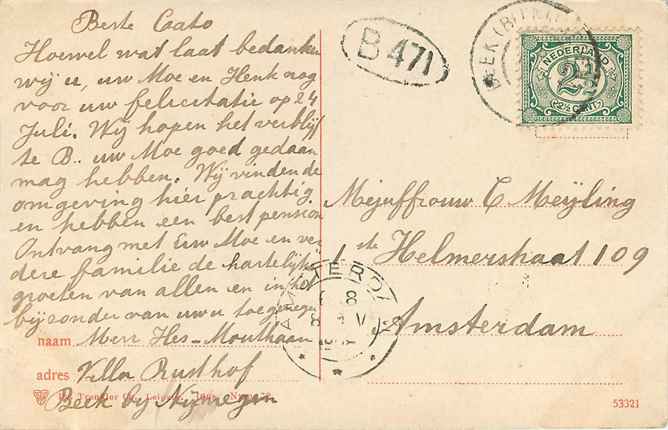 Beste Caato
Hoewel wat laat bedanken
wij u, uw Moe en Henk nog
voor uw felicitatie op 24
Juli. Wij hopen het verblijf
te B.. uw Moe goed gedaan
mag hebben. Wij vinden de
omgeving hier prachtig
en hebben een best pension
Ontvang met Uw Moe en ver
dere familie de hartelijke
groeten van allen en in het
bijzonder van uw u toegenegen
naam Merr Hes-Mouthaan
adres Villa Rusthof
Beek bij Nijmegen
B 471
BEEK (B/
NEDERLAND
2½
2½ CENT
Mejuffrouw C Meijling
1ste Helmerstraat 109
Amsterdam
AMSTERD
53321